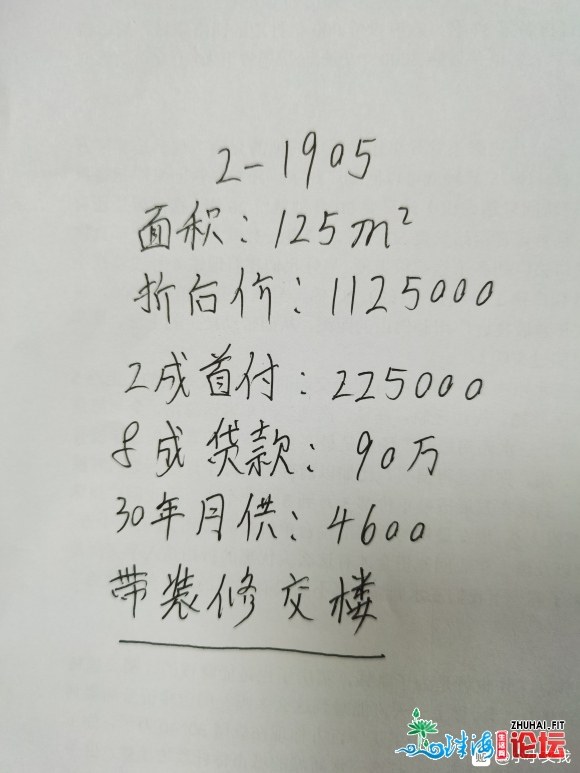 2-1905
面积：125m²
折后价：1125000
2成首付：225000
8成贷款：90万
30年月供：4600
带装修交楼
ZHUHAI.FIT
珠海生活网论坛